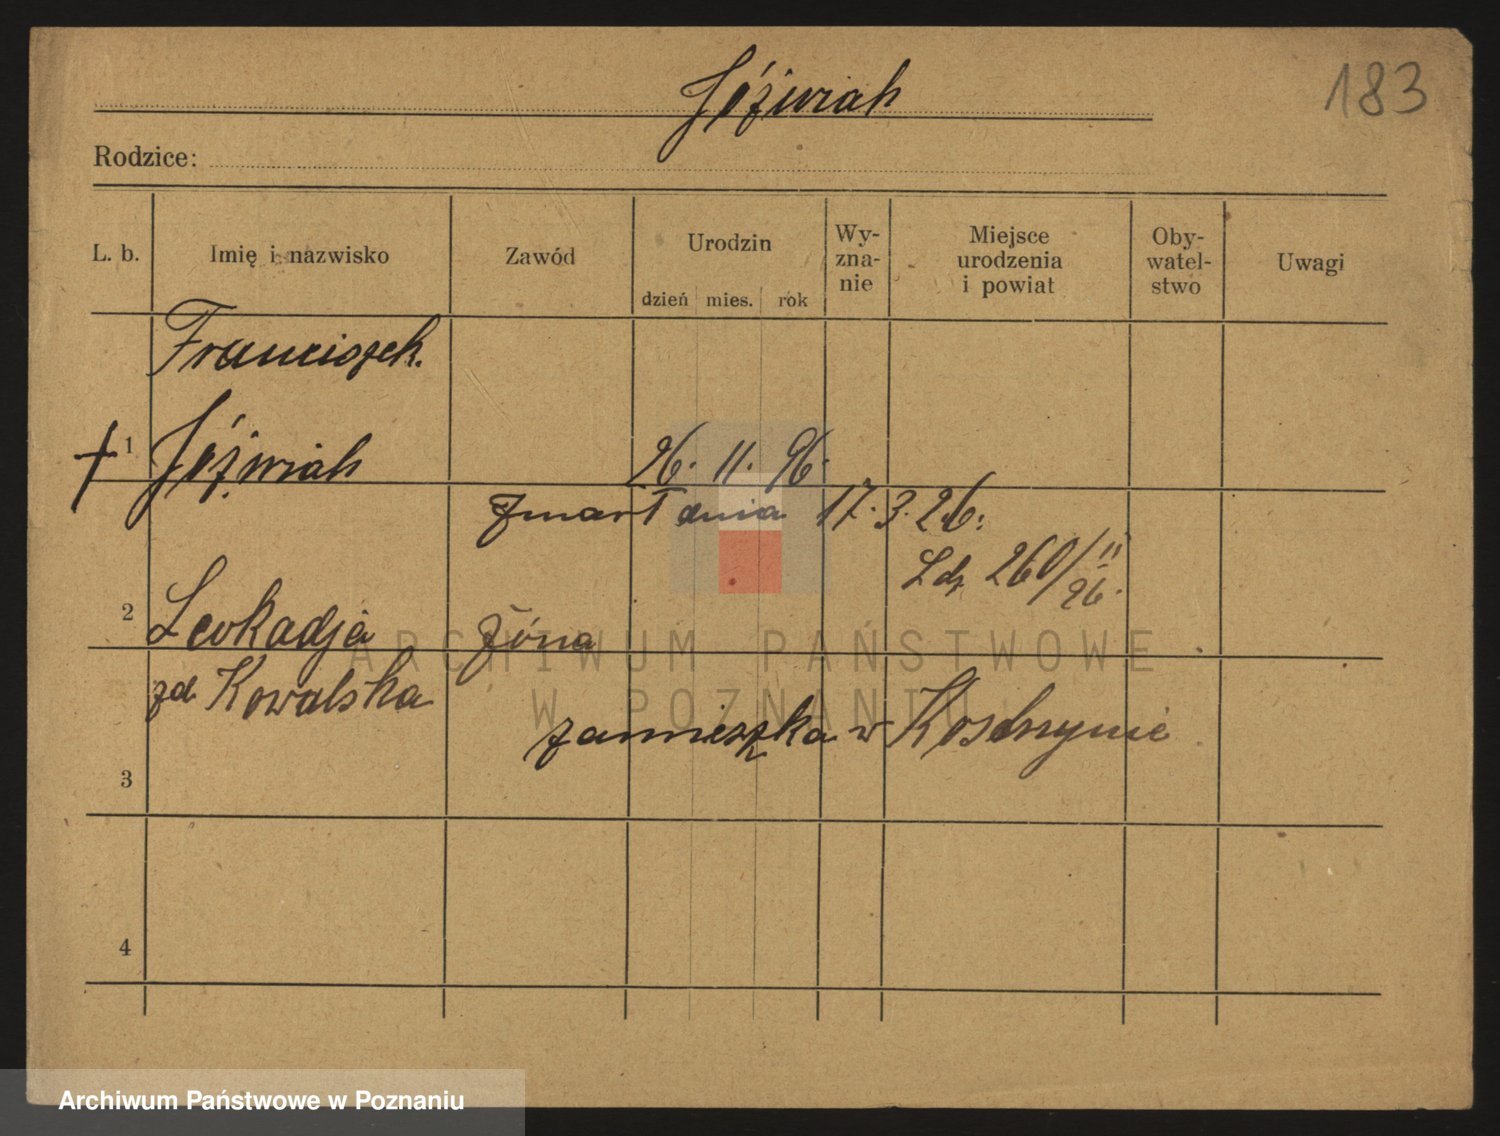 Jóźwiak
183
Rodzice:
L. b.
Imię i nazwisko
Zawód
Urodzin
dzień mies. rok
Wy-
zna-
nie
Miejsce
urodzenia
i powiat
Oby-
watel-
stwo
Uwagi
Franciszek.
1 Jóźwiak 26. 11. 96.
zmarł dnia 17.3.26.
Ldz 260/II
26.
2 Leokadja żona
zd Kowalska
zamieszka w Kostrzynie
3
4
ARCHIWUM PAŃSTWOWE
W POZNANIU
Archiwum Państwowe w Poznaniu